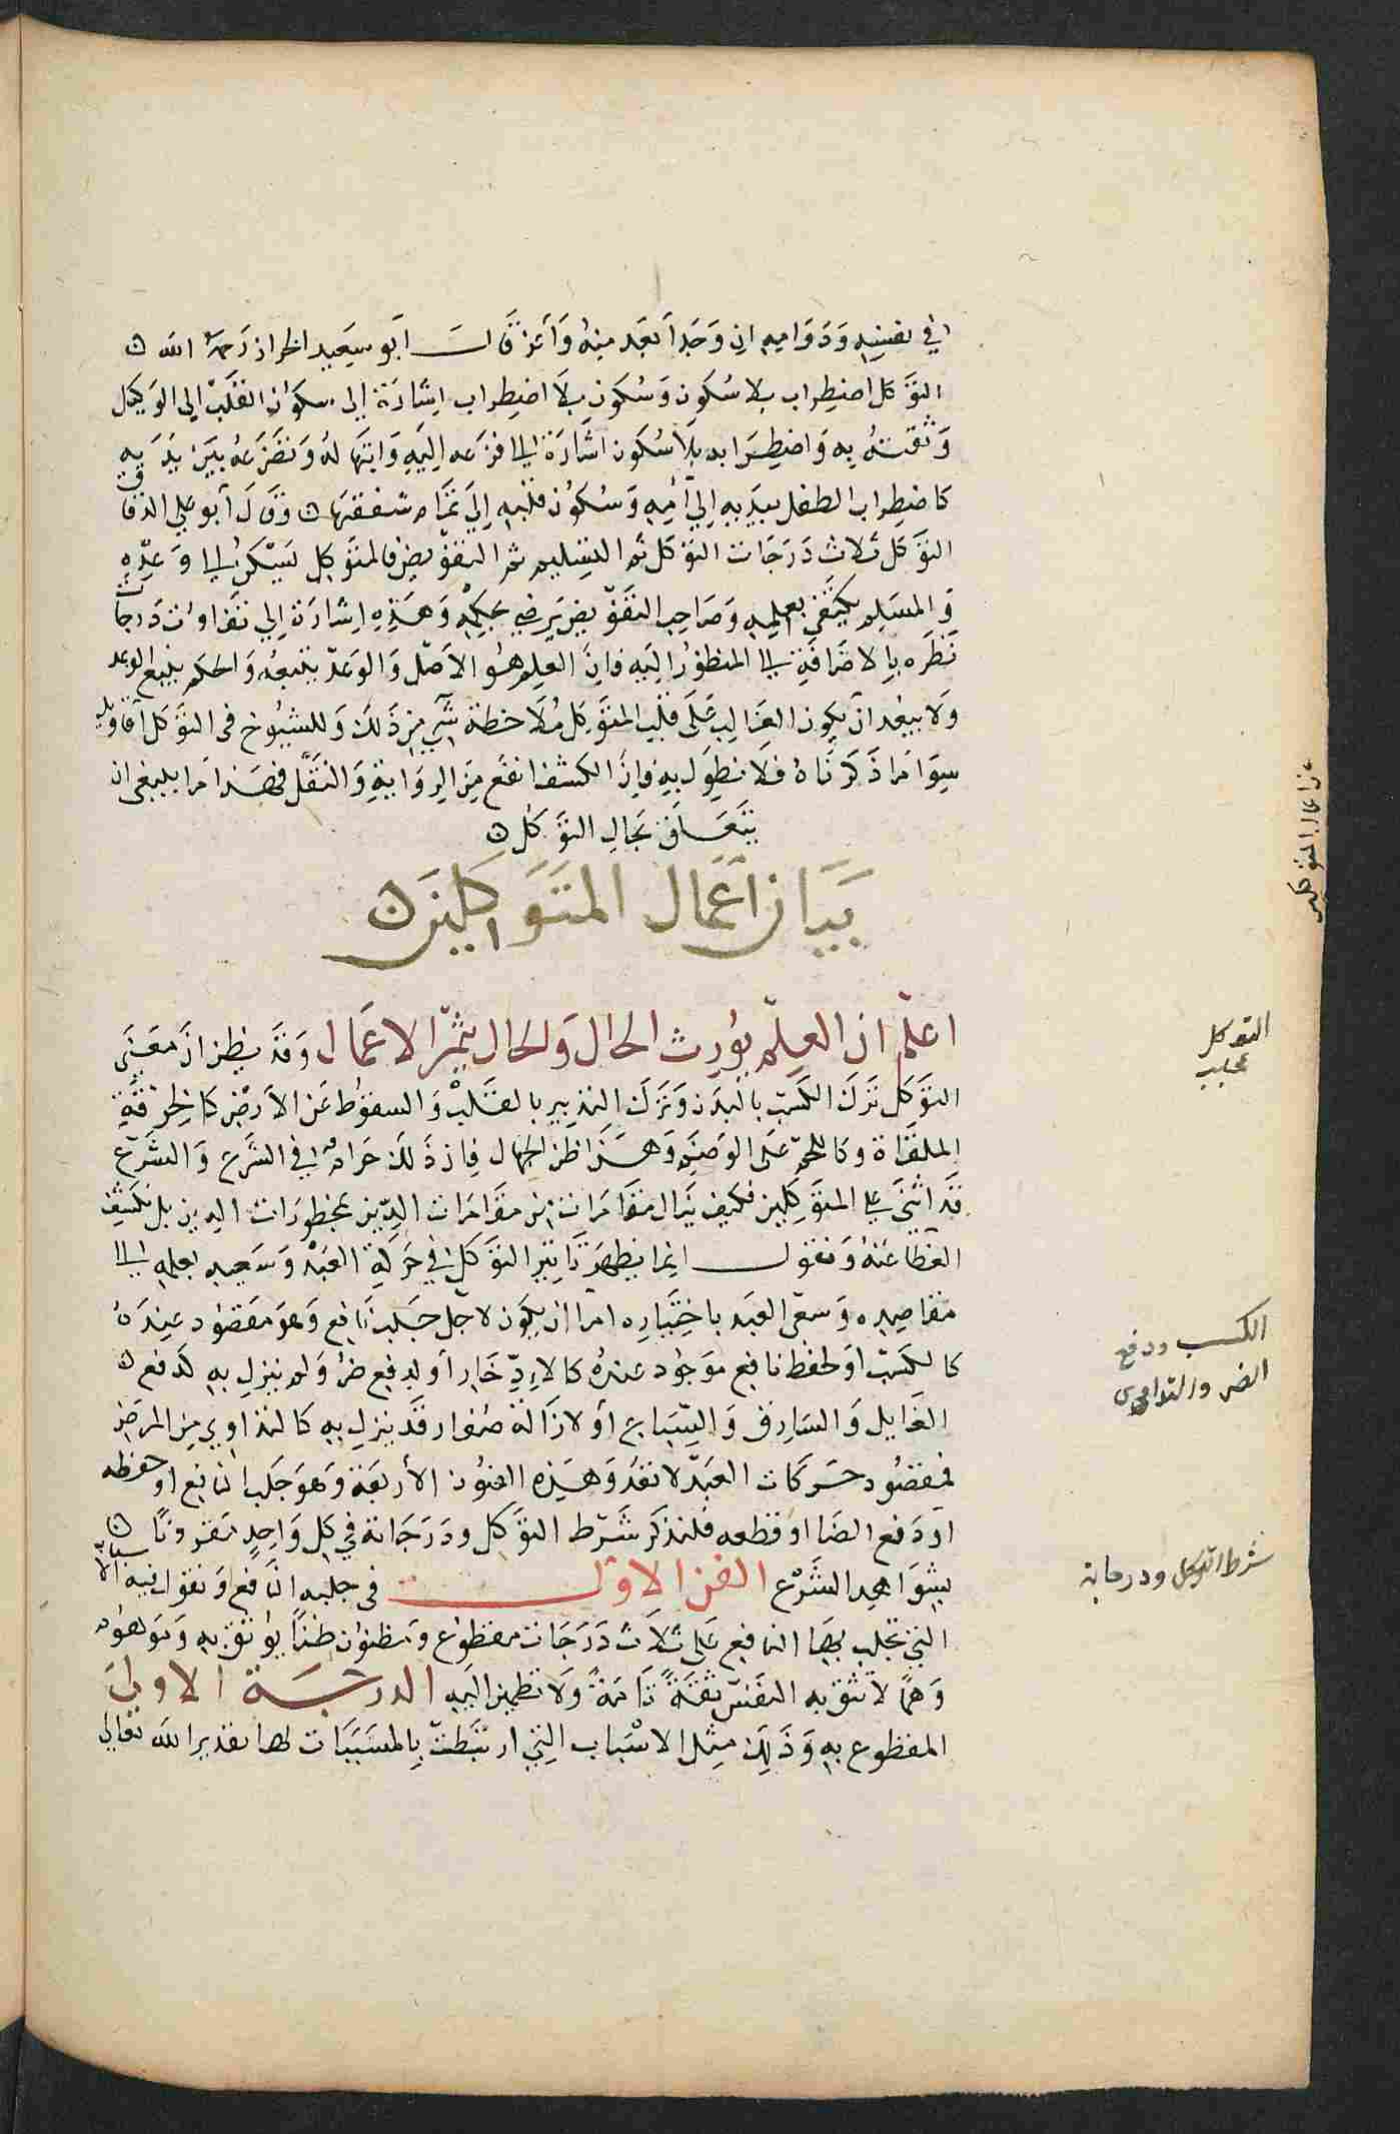 في نفسه ودوامه ان وجد ابعد منه واعز وقال ابو سعيد الخراز رحمه الله
التوكل اضطراب بلا سكون وسكون بلا اضطراب اشارة الى سكون القلب الى الوكيل
وثقته به واضطرابه بلا سكون اشارة الى فزعه اليه وابتهاله وتضرعه بين يديه
كاضطراب الطفل بيديه الى امه وسكون قلبه الى تمام شفقتها وقال ابو علي الدقاق
التوكل ثلاث درجات التوكل ثم التسليم ثم التفويض فالمتوكل يسكن الى وعده
والمسلم يكتفي بعلمه وصاحب التفويض يرضى بحكمه وهذه اشارة الى تفاوت درجات
نظره بالاضافة الى المنظور اليه فان العلم هو الاصل والوعد يتبعه والحكم يتبع الوعد
ولا يبعد ان يكون الغالب على قلب المتوكل ملاحظة شي من ذلك وللشيوخ في التوكل اقاويل
سوى ما ذكرناه فلا نطول به فان الكشف انفع من الرواية والنقل فهذا ما ينبغي ان
يتعلق بحال التوكل
بيان اعمال المتوكلين
اعلم ان العلم يورث الحال والحال يثمر الاعمال وقد يظن ان معنى
التوكل ترك الكسب بالبدن وترك التدبير بالقلب والسقوط على الارض كالخرقة
الملقاة وكاللحم على الوضم وهذا ظن الجهال فان ذلك حرام في الشرع والشرع
قد اثنى على المتوكلين فكيف ينال مقامات من مقامات الدين بمحظورات الدين بل نكشف
الغطا عنه ونقول انما يظهر تاثير التوكل في حركة العبد وسعيه بعلمه الى
مقاصده وسعي العبد باختياره اما ان يكون لاجل جلب نافع وهو مفقود عنده
كالكسب او لحفظ نافع موجود عنده كالادخار او لدفع ضر ولم ينزل به كدفع
الغايل والسارق والسباع او لازالة ضار قد ينزل به كالتداوي من المرض
فمقصود حركات العبد لا تعد وهذه الفنون الاربعة وهو جلب النافع او حفظه
او دفع الضار او قطعه فلنذكر شرط التوكل ودرجاته في كل واحد مقرونا
بشواهد الشرع الفن الاول في جلبه النافع ونقول فيه الاسباب
التي تجلب بها النافع على ثلاث درجات مقطوع ومظنون ظنا يوثق به وموهوم
وهما لا تثق به النفس ثقة تامة ولا تطمين اليه الدرجة الاولى
المقطوع به وذلك مثل الاسباب التي ارتبطت بالمسببات لها بتقدير الله تعالى
التوكل
الكسب ودفع
الضر والتداوي
شرط التوكل ودرجاته